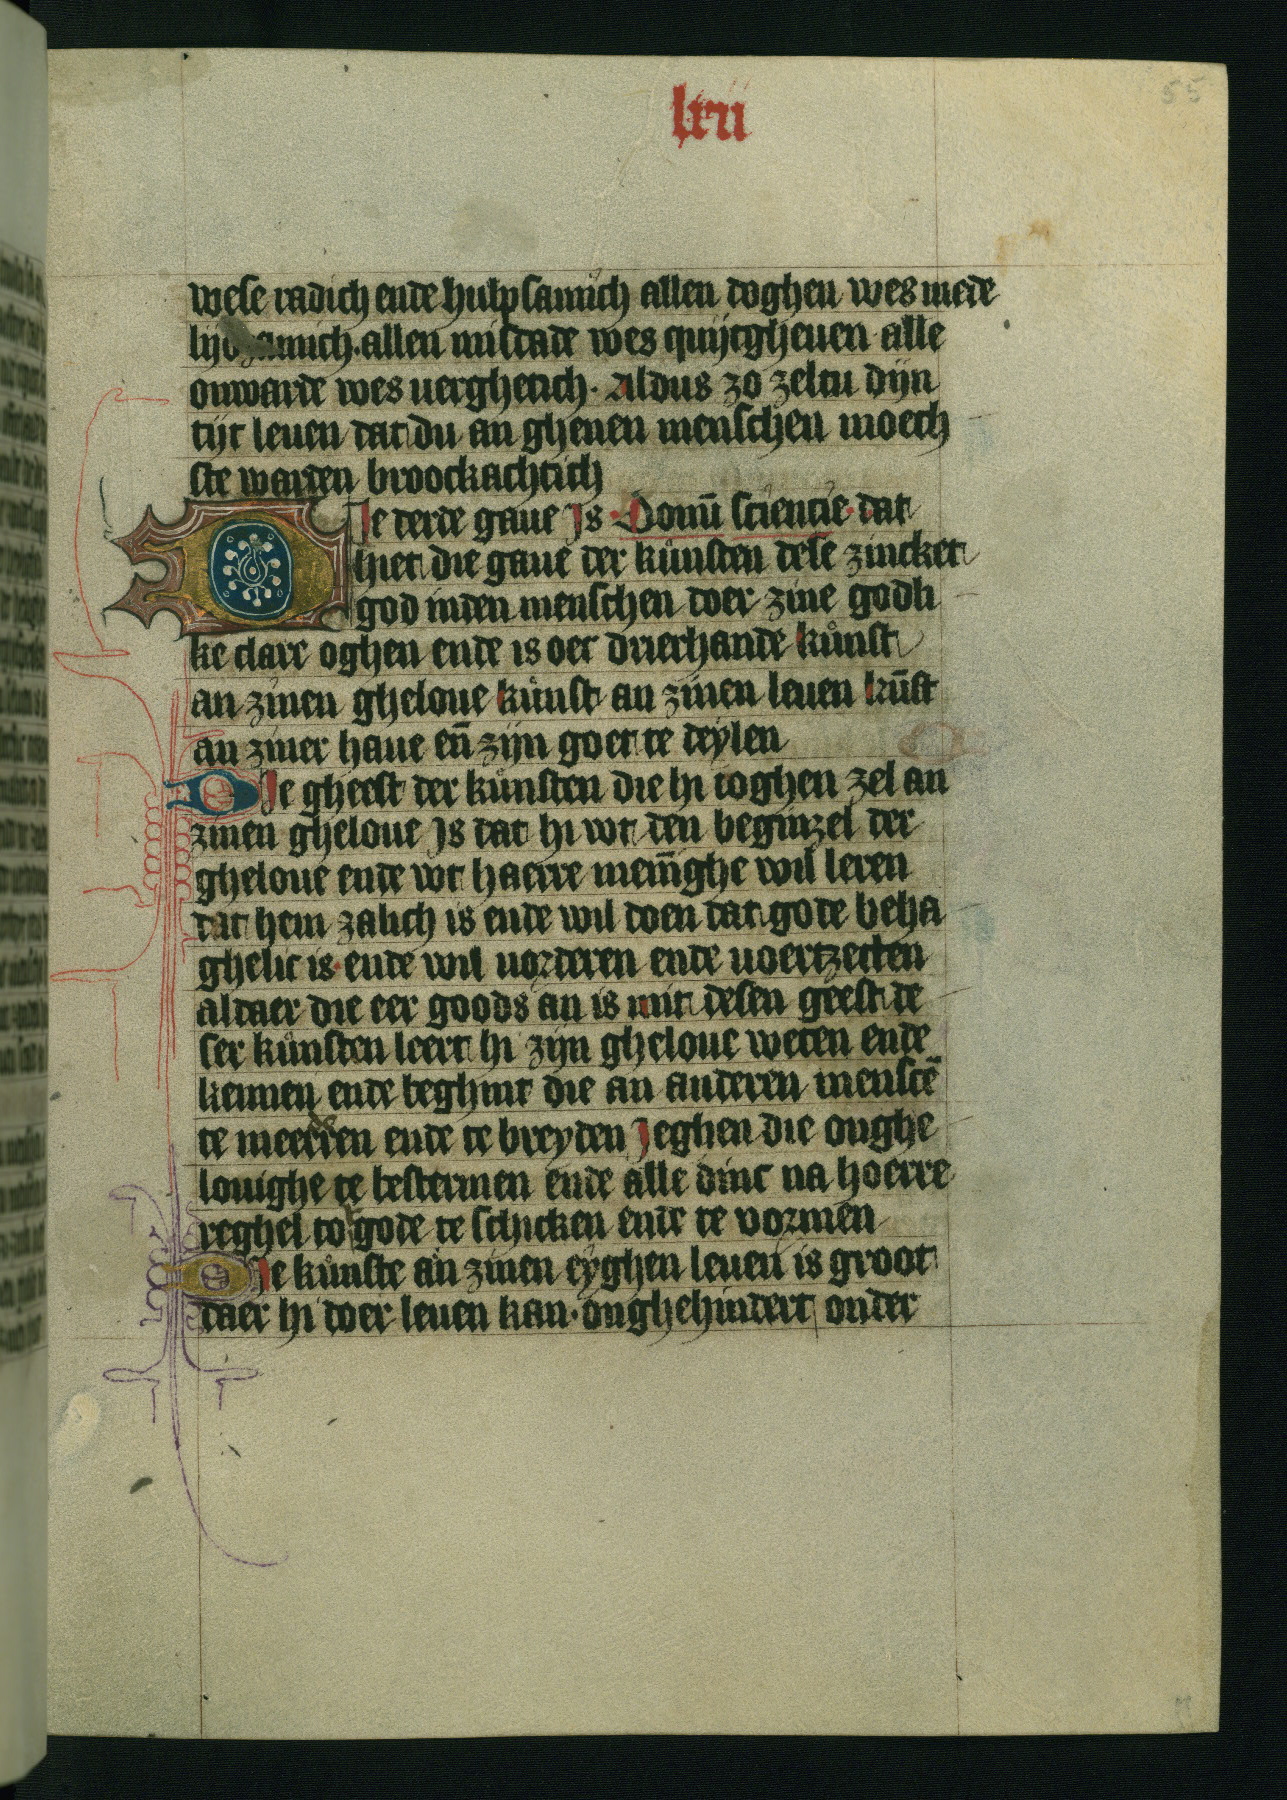 lxii
55
wese radich ende hulpsamich allen doghen wes mede
lijdsamich. allen misdade wes quijtgheuen alle
onwarde wes uerghetich. Aldus zo zeltu dijn
tijt leuen dat du an ghenen menschen moech
ste warden broockachtich
Die derde gaue Is. Donū sciencie. dat
hiet die gaue der kůnsten dese zincket
god inden menschen doer zine godli
ke clare oghen ende is oec drierhande kůnst
an zinen gheloue kůnst an zinen leuen kūst
an ziner haue eñ zijn goet te deylen
Die gheest der kůnsten die hi toghen zel an
zinen gheloue Is dat hi wt den beginzel der
gheloue ende wt haerre meninghe wil leren
dat hem zalich is ende wil doen dat gode beha
ghelic is. ende wil uorderen ende uoertzetten
aldaer die eer goods an is mit desen geest de
ser kůnsten leert hi zijn gheloue weten ende
kennen ende beghint die an anderen menscē
te meerren ende te breyden Ieghen die onghe
louighe te bestermen ende alle dinc na hoerre
reghel to gode te schicken ende te vormen
Die kůnste an zinen eyghen leuen is groot
daer hi doer leuen kan. onghehindert onder